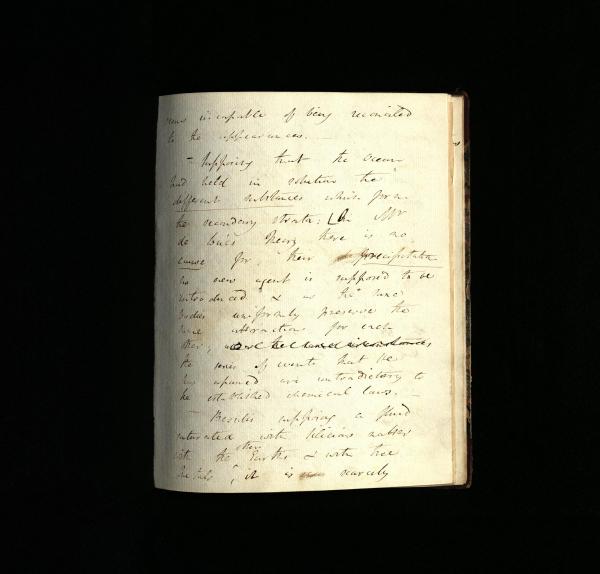 seems incapable of being reconciled
to the appearances. —
— Supposing that the ocean
had held in solution the
different substances which form
the secondary strata; in Mr
de Luc's Theory there is no
cause for their precipitation
no new agent is supposed to be
introduced & as the same
bodies uniformly preserve the
same attractions for each
other, under the same circumstances,
the series of events that he
has assumed are contradictory to
the established chemical laws. —
— Besides supposing a fluid
saturated with silicious matter
with the other Earths & with the
Metals, it is scarcely